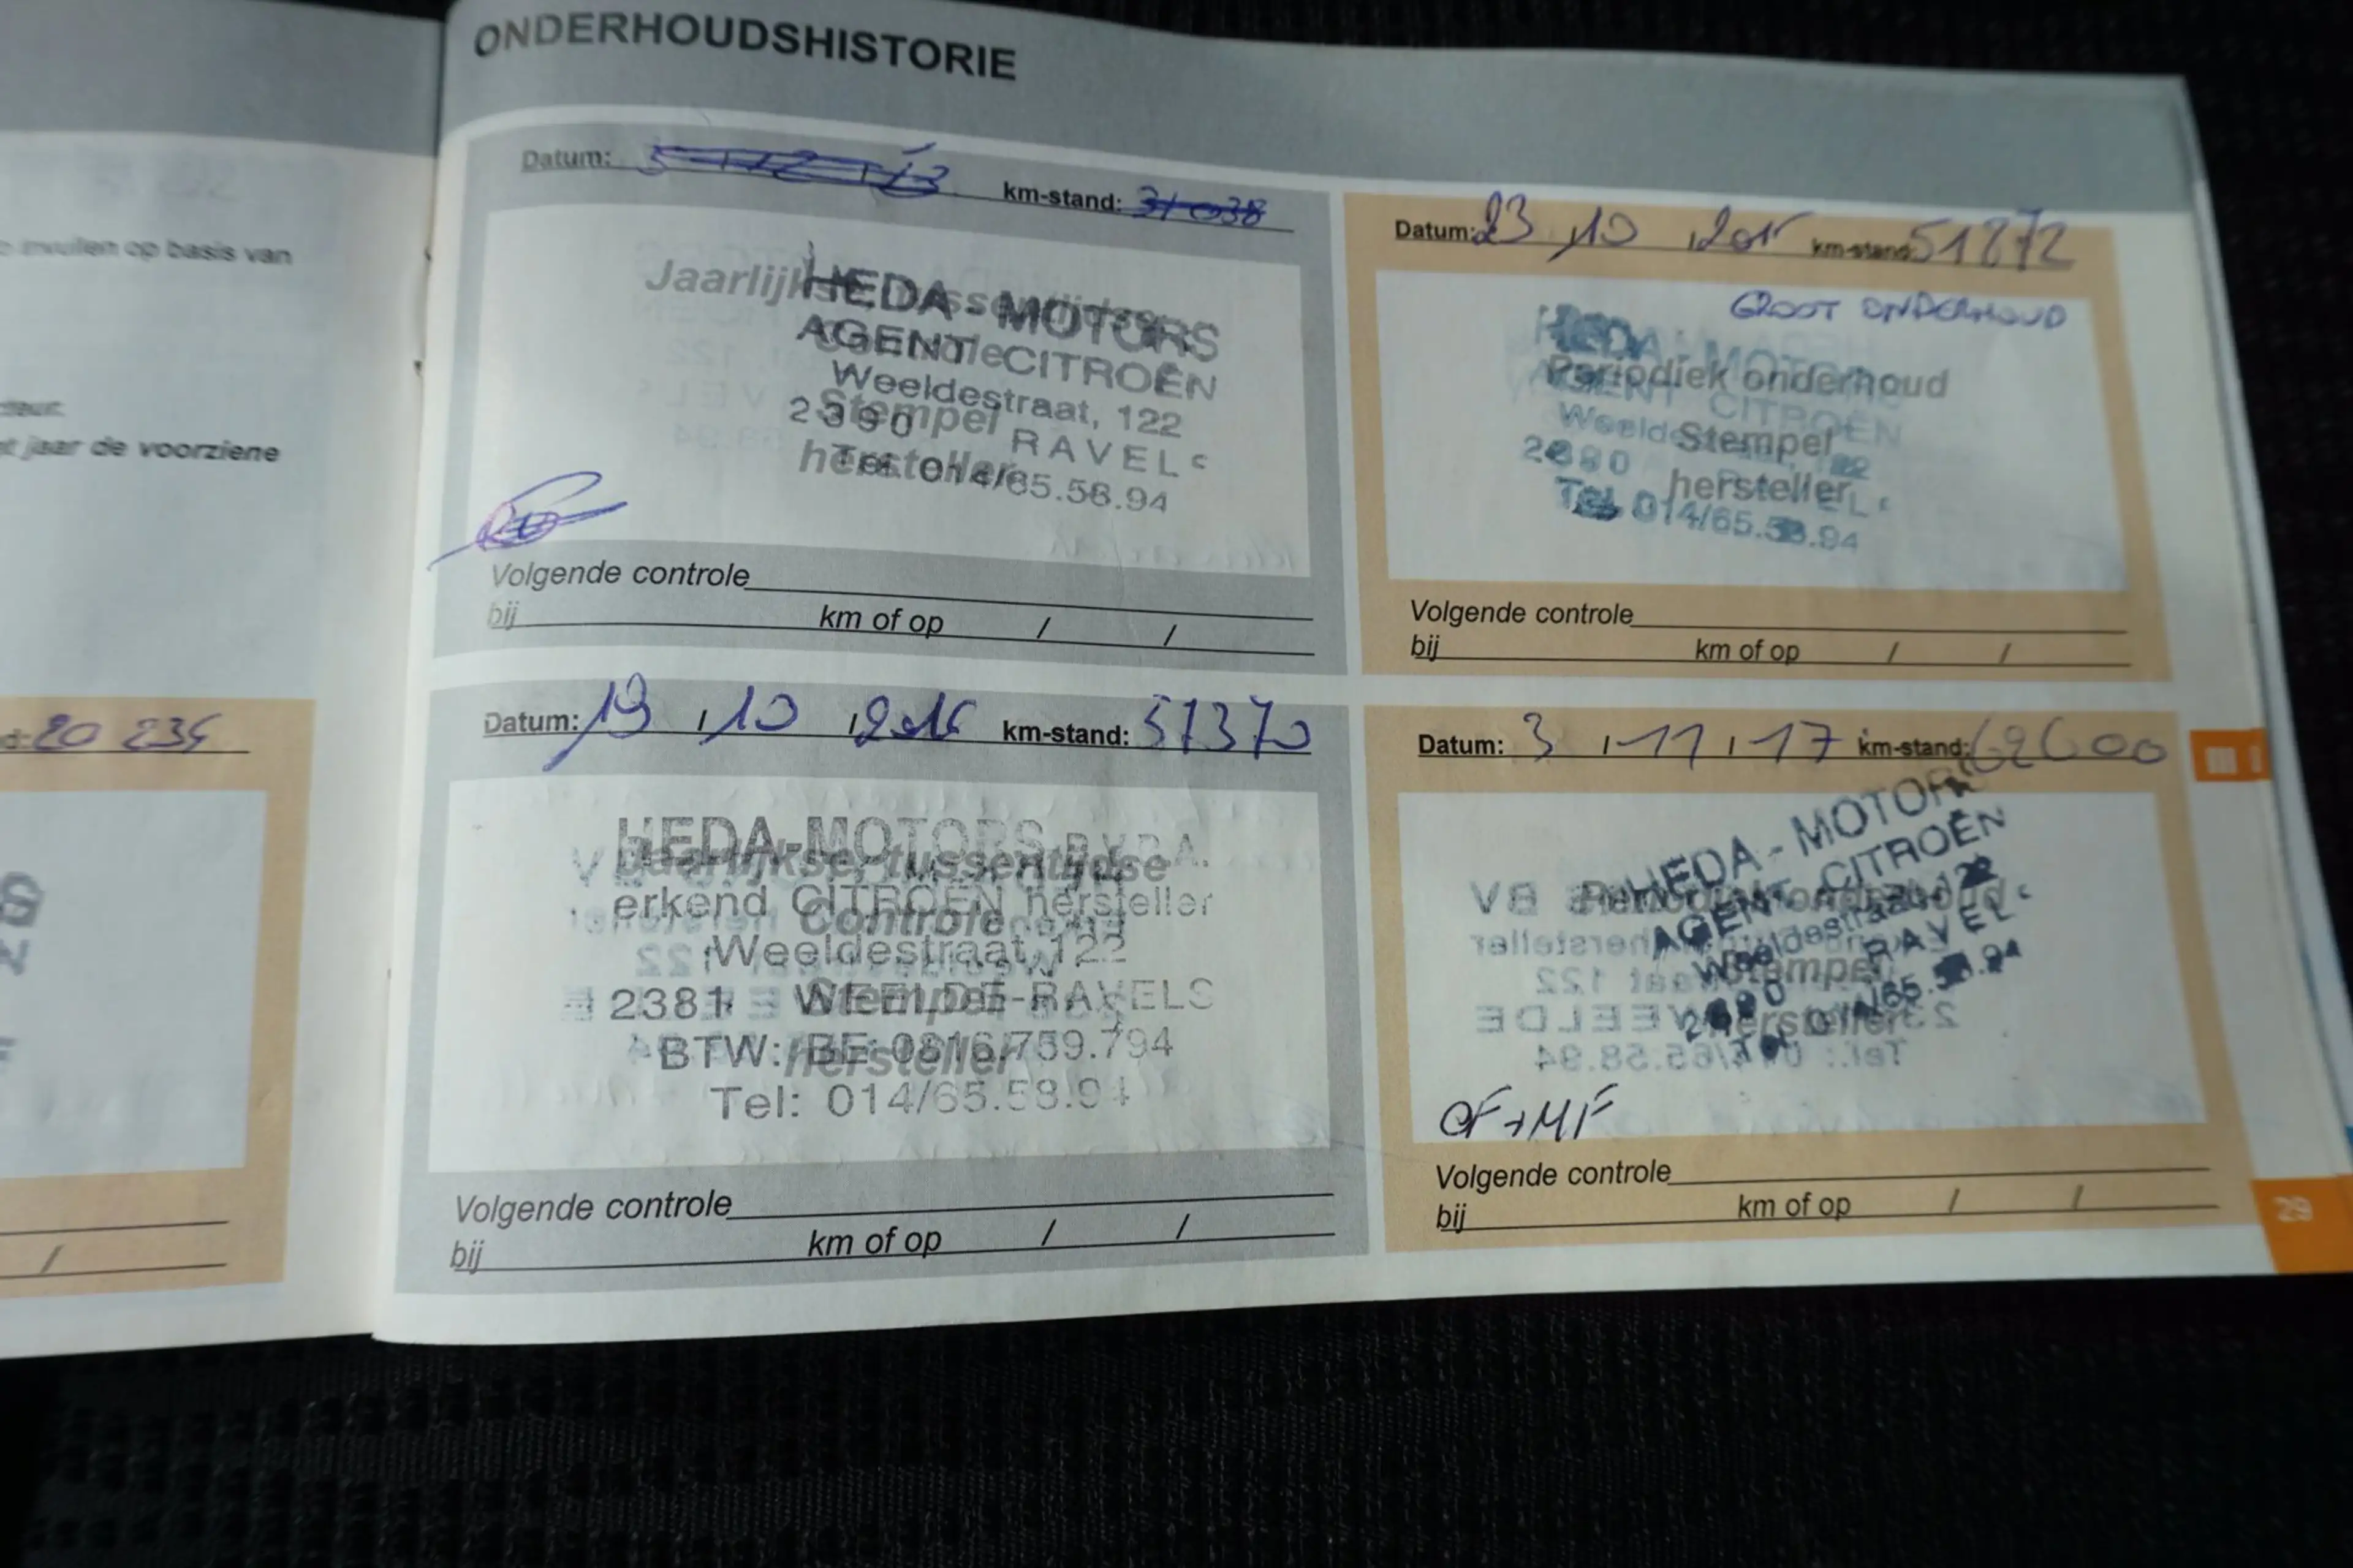 ONDERHOUDSHISTORIE
invullen op basis van
jaar de voorziene
20 234
/
Datum: 5 12 13 km-stand: 31 038
Jaarlijkse, tussentijdse
Controle
Stempel
hersteller
HEDA - MOTORS
AGENT CITROËN
Weeldestraat, 122
2390 RAVELS
Tel. 014/65.58.94
Volgende controle
bij km of op / /
Datum: 23 / 10 / 2015 km-stand: 51872
GROOT ONDERHOUD
Periodiek onderhoud
Stempel
hersteller
HEDA - MOTORS
AGENT CITROËN
Weeldestraat, 122
2390 RAVELS
Tel. 014/65.58.94
Volgende controle
bij km of op / /
Datum: 19 / 10 / 2016 km-stand: 57370
Jaarlijkse, tussentijdse
Controle
Stempel
hersteller
HEDA-MOTORS B.V.B.A.
erkend CITROËN hersteller
Weeldestraat, 122
2381 WEELDE-RAVELS
BTW: BE 0816.759.794
Tel: 014/65.58.94
Volgende controle
bij km of op / /
Datum: 3 / 11 / 17 km-stand: 62600
Periodiek onderhoud
Stempel
hersteller
HEDA - MOTORS
AGENT CITROËN
Weeldestraat, 122
2390 RAVELS
Tel. 014/65.58.94
OF+MF
Volgende controle
bij km of op / /
29